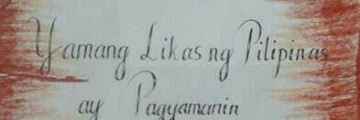 Yamang Likas ng Pilipinas
ay Pagyamanin